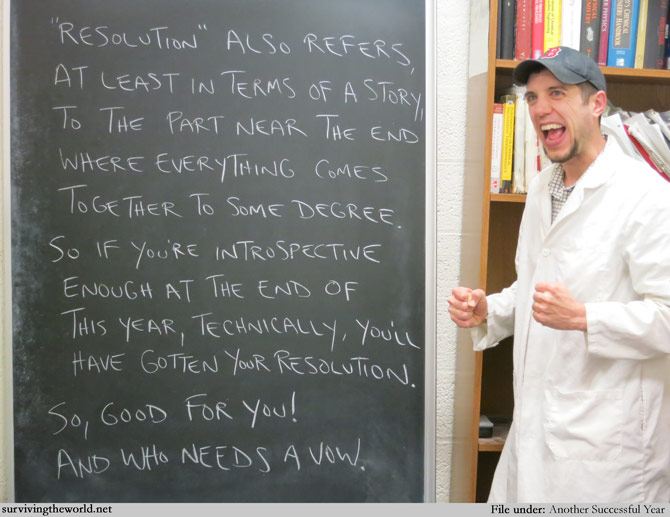 "RESOLUTION" ALSO REFERS,
AT LEAST IN TERMS OF A STORY,
TO THE PART NEAR THE END
WHERE EVERYTHING COMES
TOGETHER TO SOME DEGREE.
SO IF YOU'RE INTROSPECTIVE
ENOUGH AT THE END OF
THIS YEAR, TECHNICALLY, YOU'LL
HAVE GOTTEN YOUR RESOLUTION.
SO, GOOD FOR YOU!
AND WHO NEEDS A VOW.
survivingtheworld.net
File under: Another Successful Year